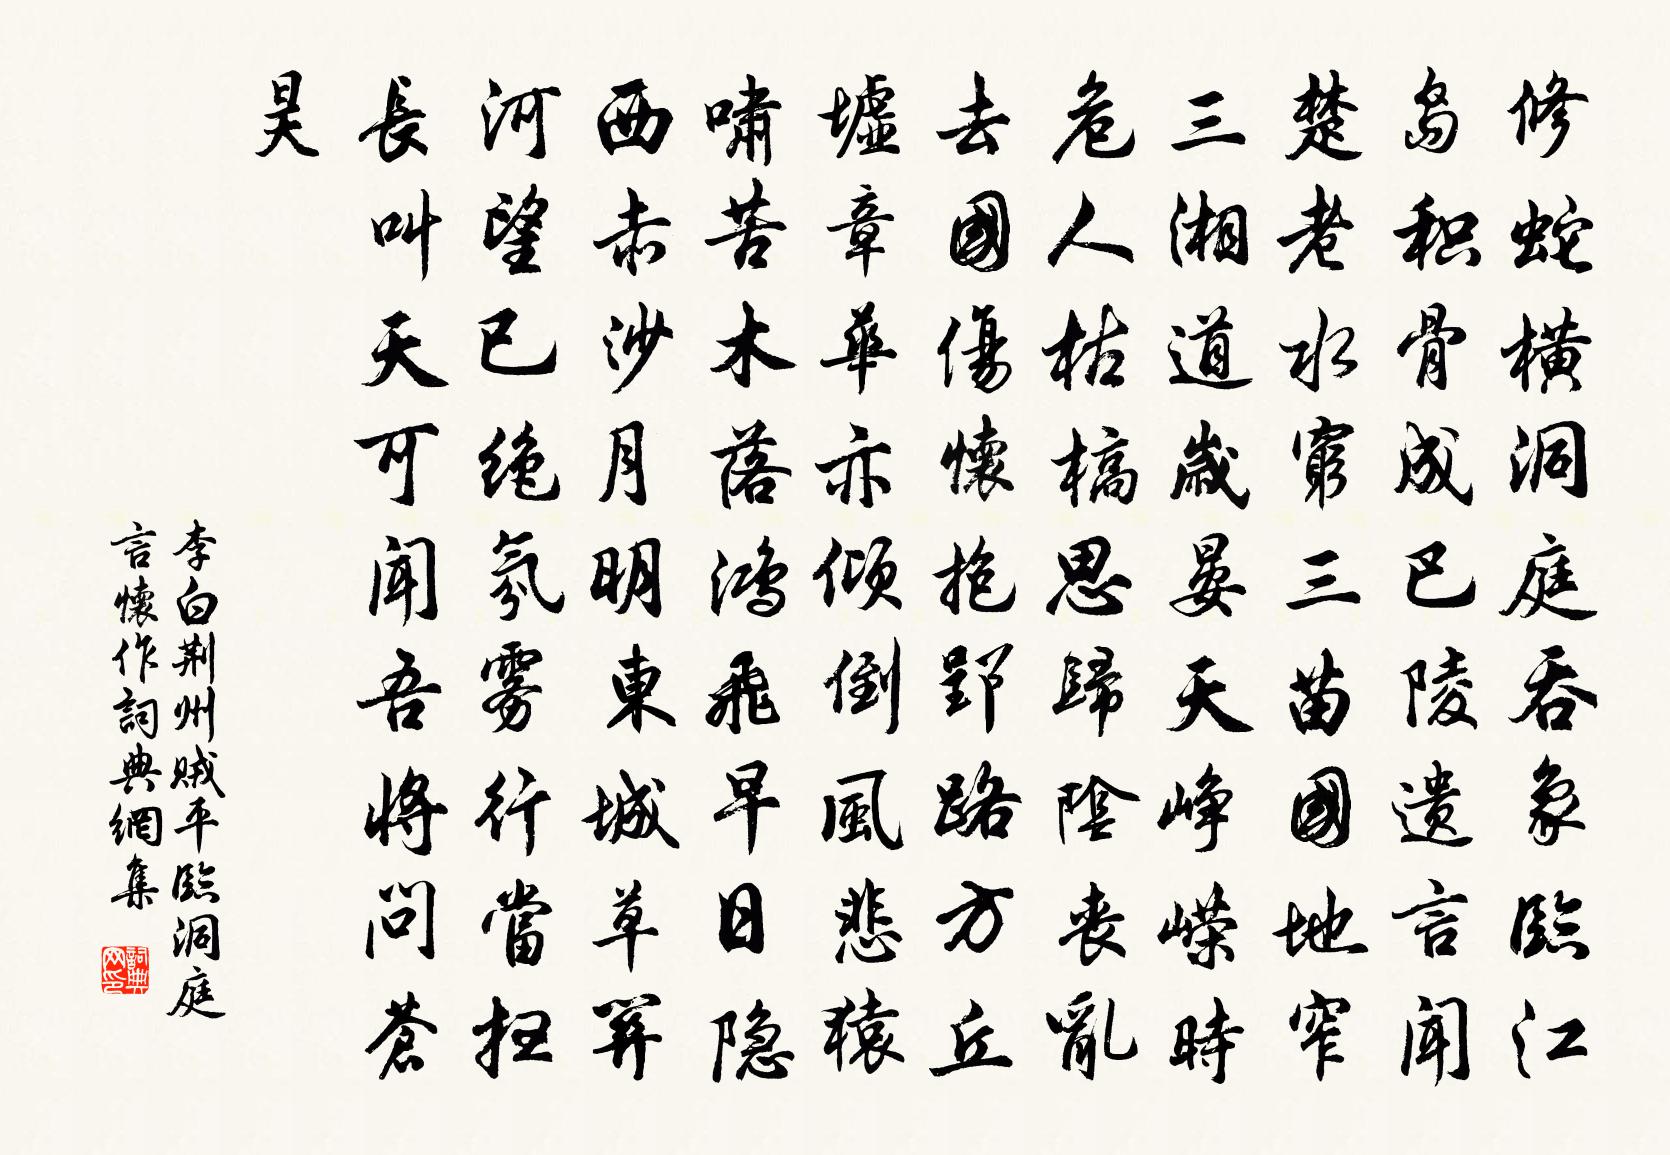 修蛇橫洞庭吞象臨江
島积骨成巴陵遗言聞
楚老水窮三苗國地窄
三湘道歲晏天崢嶸時
危人枯槁思歸陰喪亂
去國傷懷抱郢路方丘
墟章華亦傾倒風悲猿
嘯苦木落鴻飛早日隐
西赤沙月明東城草關
河望已絶氛雾行當扫
長叫天可聞吾將問蒼
昊
李白荆州贼平臨洞庭
言懷作詞典網集
詞典网印